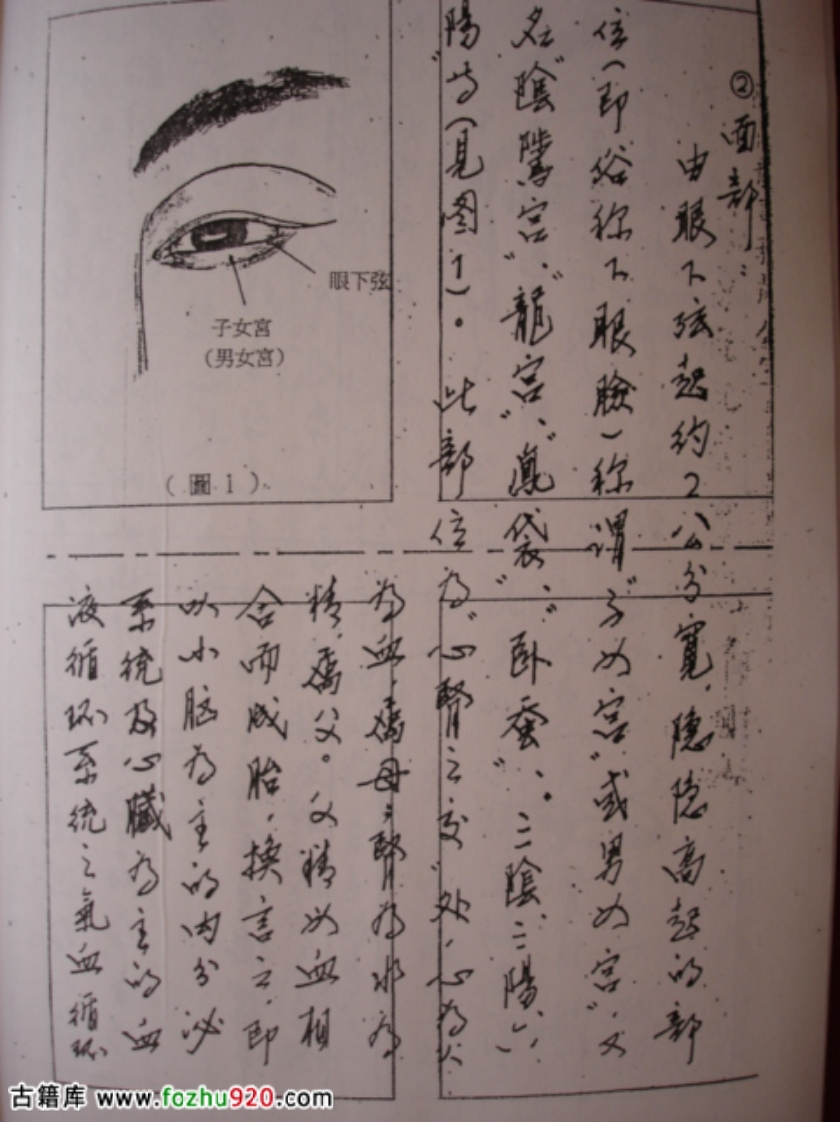 ②面部：
由眼下弦起约2公分寬，隐隐高起的部
位（即俗称下眼瞼）称谓"子女宫"或男女宫"，又
名"陰騭宫"、"龍宫"、"鳳袋"、"卧蚕"、。三陰三陽、
陽"等（見图1）。此部位为"心腎之交"处，心为火
为血，為母；腎为水为
精，為父。父精女血相
合而成胎，换言之，即
以小脑为主的内分泌
系统及心臟为主的血
液循环系统之氣血循环
眼下弦
子女宮
（男女宮）
（圖1）
古籍库 www.fozhu920.com